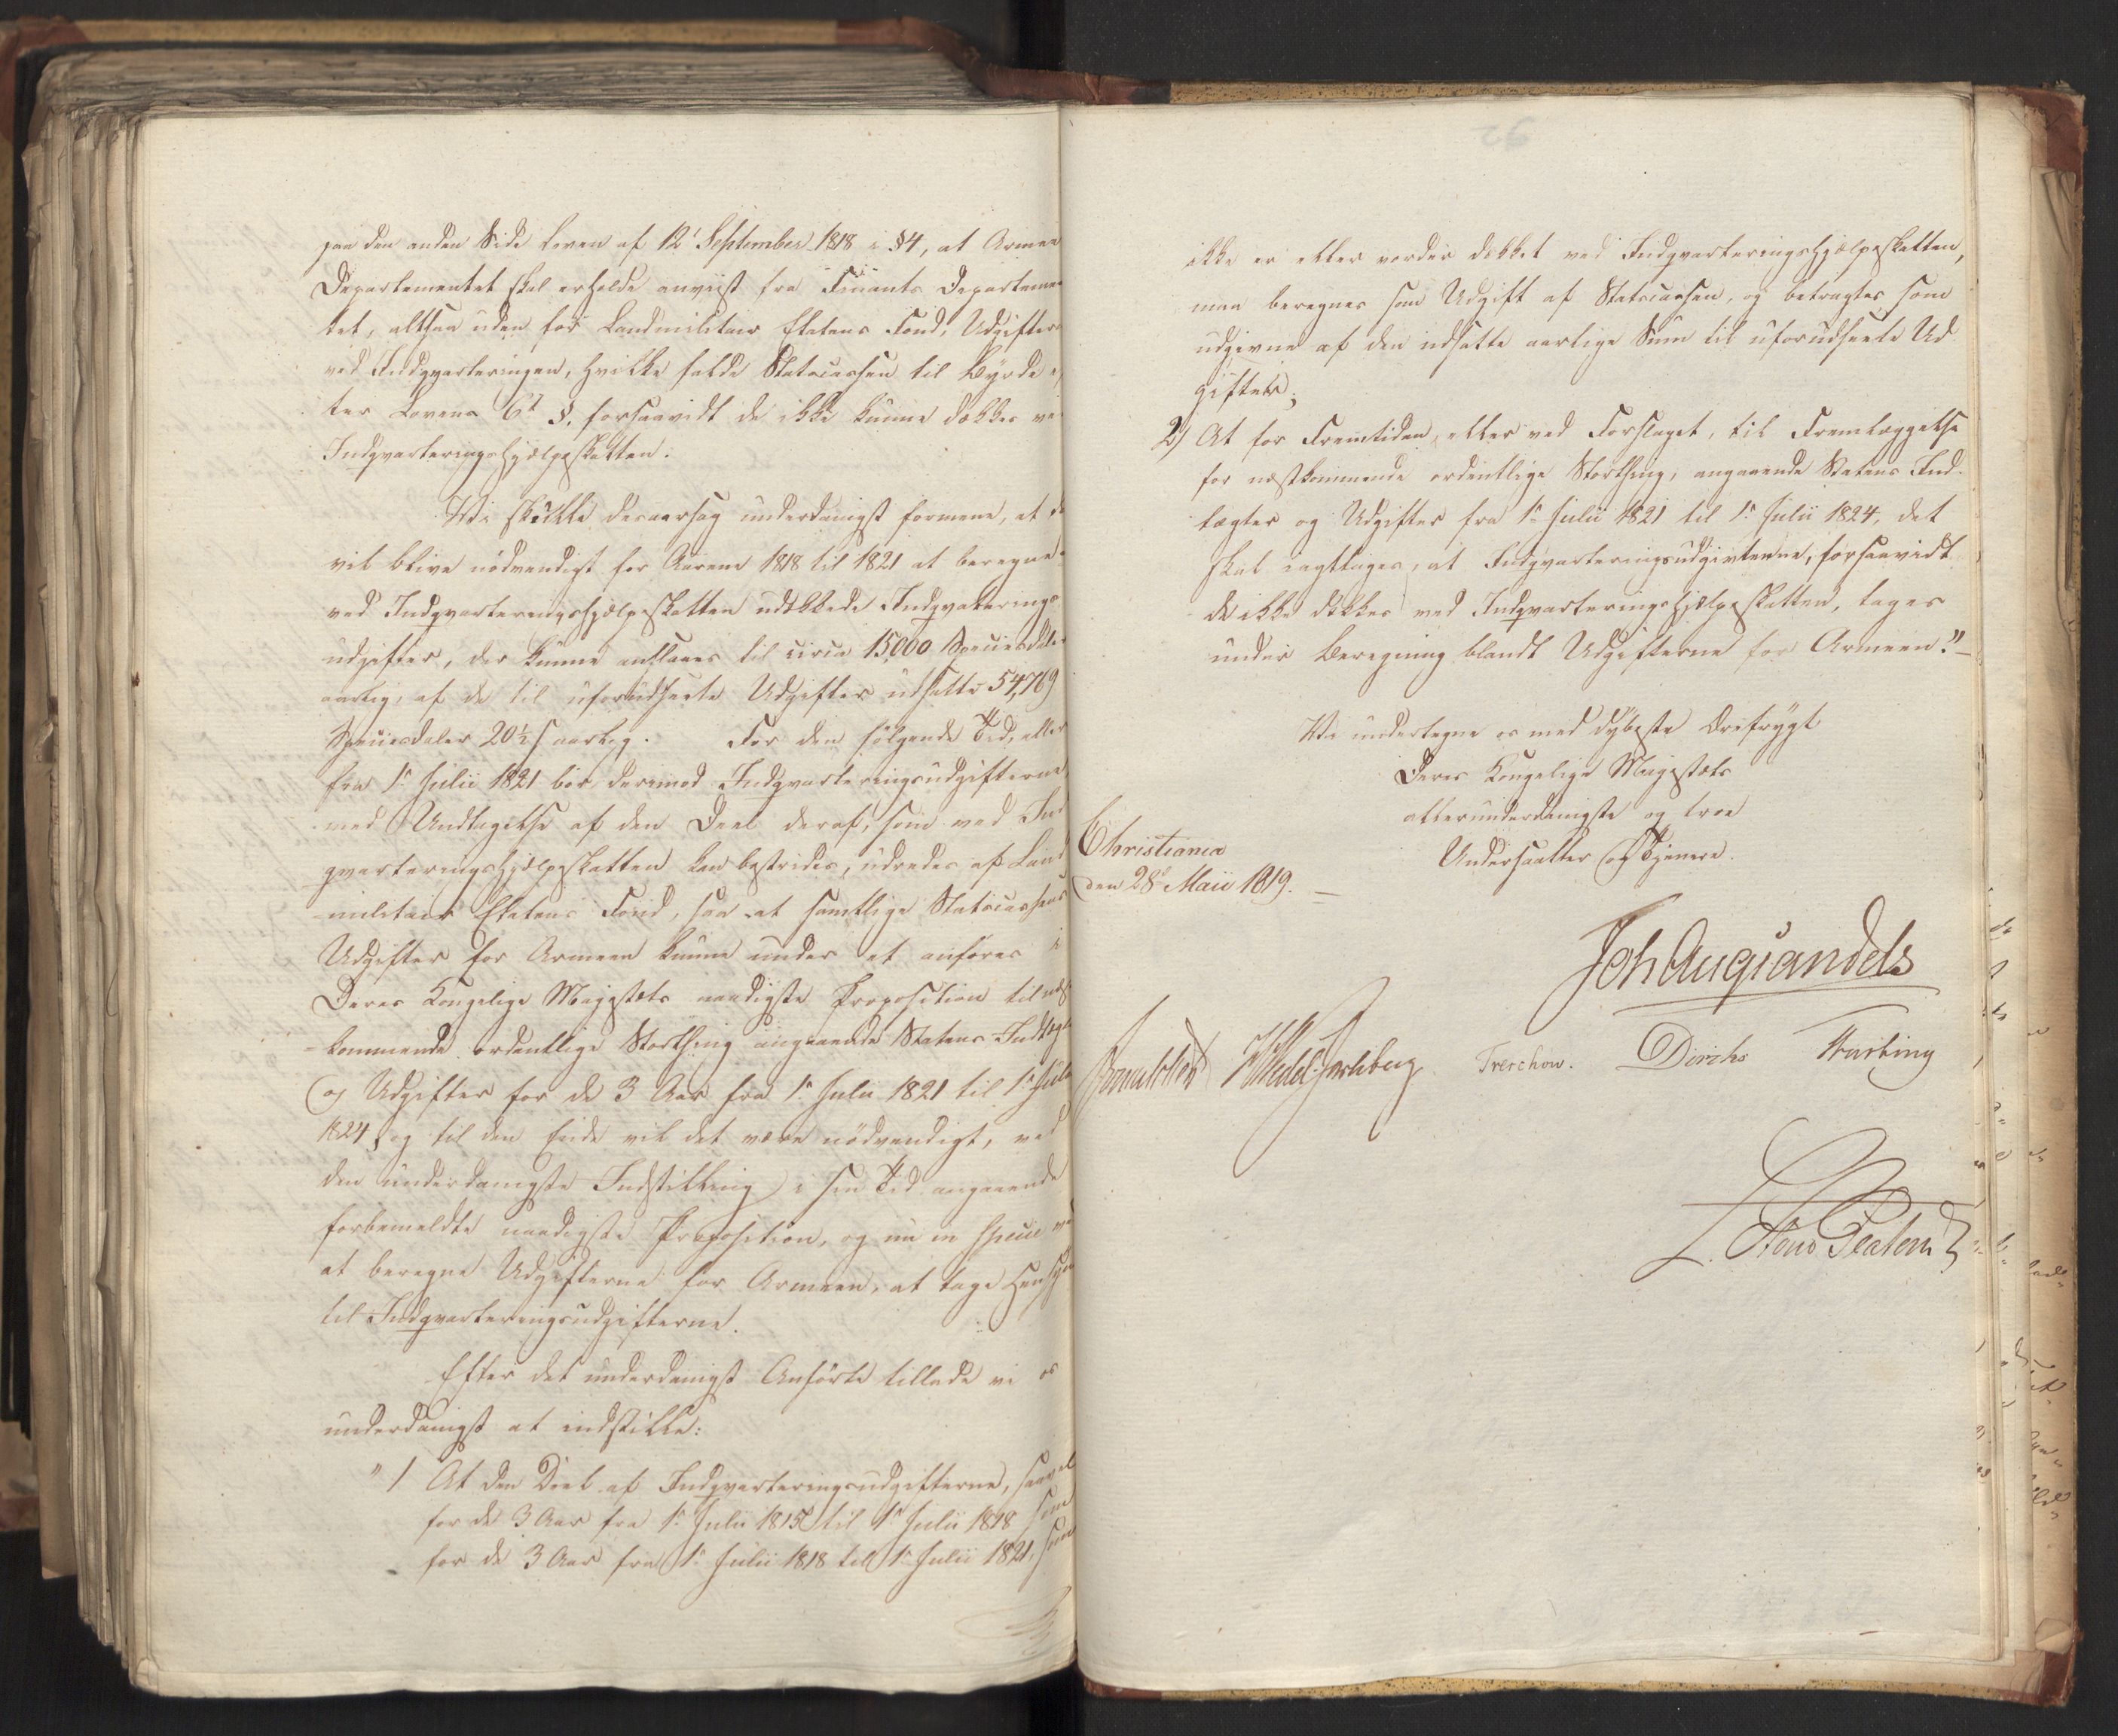 paa den anden Side Loven af 12' September 1818 i §4, at Armee
Departementet skal erholde anviist fra Finants Departemen
tet, altsaa uden for Landmilitair Etatens Fond, Udgifter
ved Indqvarteringen, hvilke falde Statscassen til Byrde ef
ter Lovens 6t §. forsaavidt de ikke kunne dækkes ve
Indqvarteringshjælpeskatten.
Vi skulle desaarsag underdanigst formene, at de
vil blive nödvendigt for Aarene 1818 til 1821 at beregne
ved Indqvarteringshjælpeskatten udækkede Indqvarterings
udgifter, der kunne anslaaes til circa 15,000 Speciesdaler
aarlig, af de til uforudseete Udgifter udsatte 54,769
Speciesdaler 20½ s aarlig. For den fölgende Tid, eller
fra 1' Julii 1821 bör derimod Indqvarteringsudgifterne,
med Undtagelse af den Deel deraf, som ved Ind
qvarteringshjælpeskatten kan bestrides, udredes af Land
militair Etatens Fond, saa at samtlige Statscassens
Udgifter for Armeen kunne under et anföres i
Deres Kongelige Majestæts naadigste Proposition til næst
kommende ordentlige Storthing angaaende Statens Indtægter
og Udgifter for de 3 Aar fra 1' Julii 1821 til 1' Julii
1824, og til den Ende vil det være nödvendigt, ved
den underdanigste Indstilling i sin Tid angaaende
forbemeldte naadigste Proposition, og nu in specie ved
at beregne Udgifterne for Armeen, at tage Hensyn
til Indqvarteringsudgifterne.
Efter det underdanigst Anförte tillade vi os
underdanigst at indstille:
" 1 At den Deel af Indqvarteringsudgifterne, saavel
for de 3 Aar fra 1' Julii 1815 til 1' Julii 1818 som
for de 3 Aar fra 1' Julii 1818 til 1' Julii 1821, som
ikke er eller vorder dækket ved Indqvarteringshjælpeskatten,
maa beregnes som Udgift af Statscassen, og betragtes som
udgivne af den udsatte aarlige Sum til uforudseete Ud
gifter;
2) At for Fremtiden, eller ved Forslaget, til Fremlæggelse
for næstkommende ordentlige Storthing, angaaende Statens Ind-
tægter og Udgifter fra 1' Julii 1821 til 1' Julii 1824, det
skal iagttages, at Indqvarteringsudgivterne, forsaavidt
de ikke dækkes ved Indqvarteringshjælpeskatten, tages
under Beregning blandt Udgifterne for Armeen."
Vi undertegne os med dybeste Ærefrygt
Deres Kongelige Majestæts
allerunderdanigste og troe
Undersaatter og Tjenere.
Christiania
den 28' Maii 1819.
Joh Aug Sandels
HWedel-Jarlsberg Treschow. Diriks